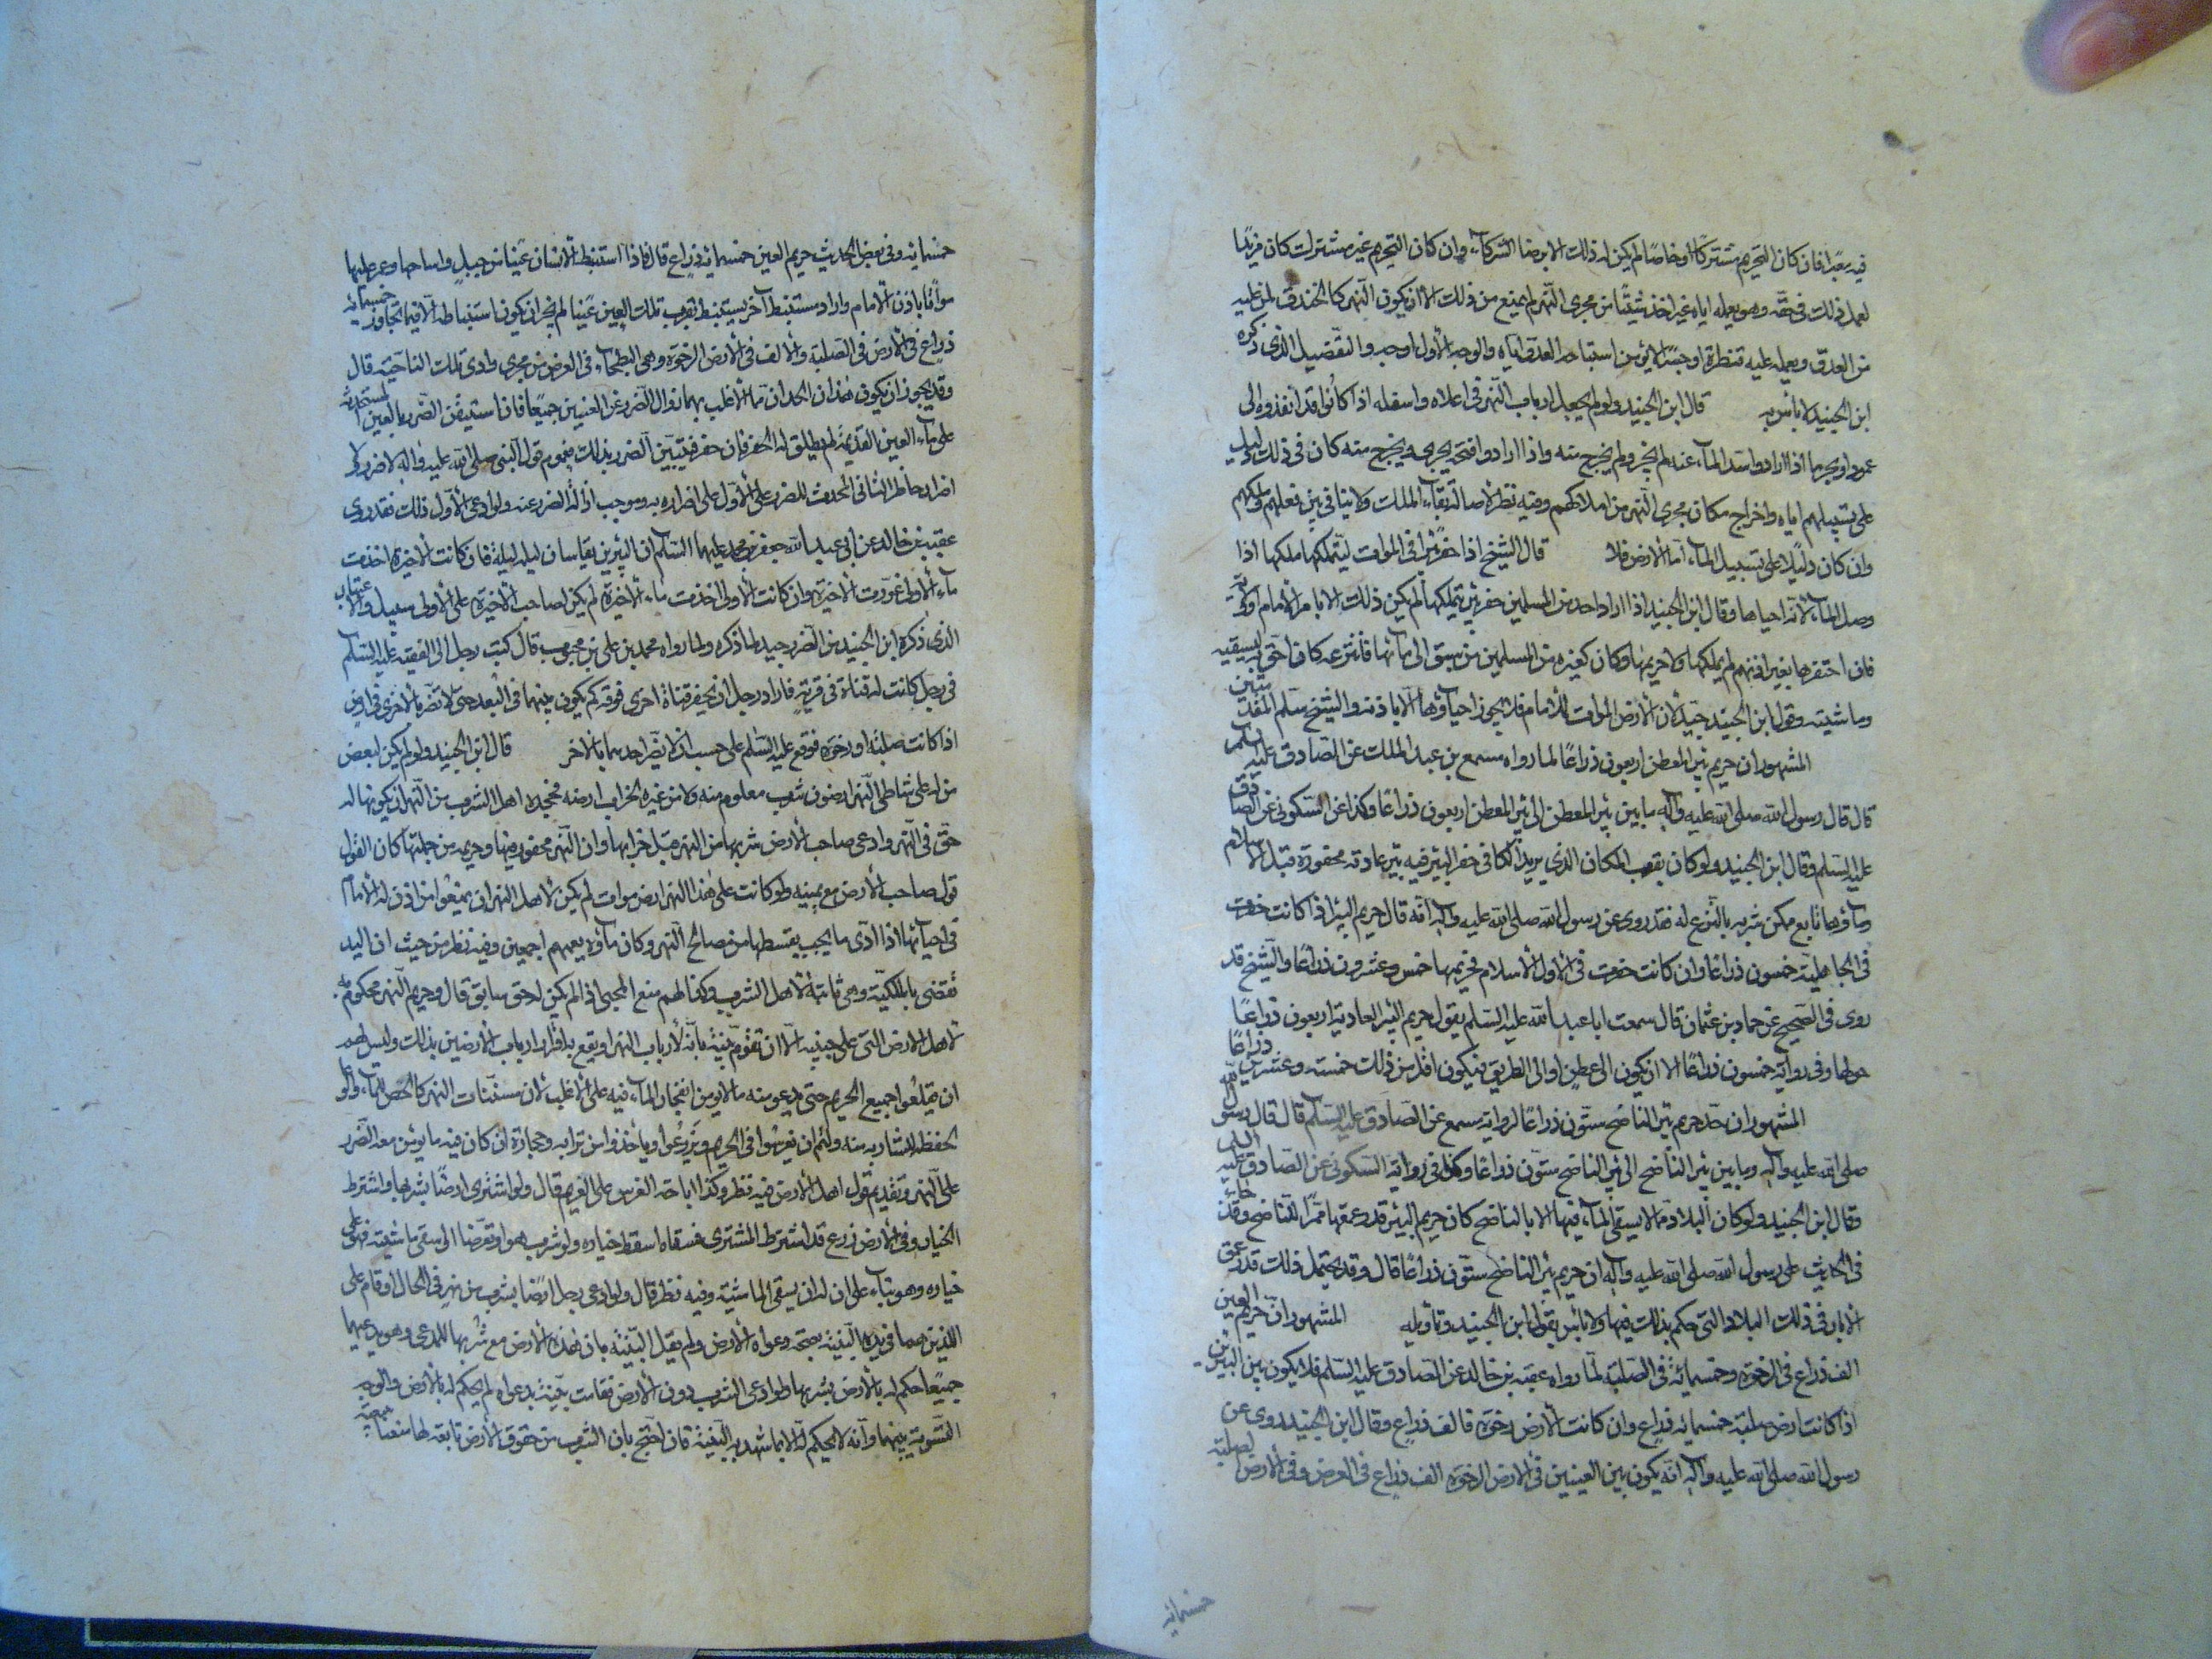 فيه بعيدا فان كان التحريم مشتركا او خاصا لم يكن له ذلك الا برضا الشركاء وان كان التحريم غير مشترك كان فريدا
لعمل ذلك في حقه وهو بعمله اياه غير اخذ شيئا من مجرى النهر لم يمنع من ذلك الا ان يكون النهر كالخندق لمن عليه
من العدو ويعمله عليه قنطرة او جسرا لا يؤمن استباحه العدو اياه والوجه الأول اوجه والتفصيل الذي ذكره
ابن الجنيد لا بأس به قال ابن الجنيد ولو لم يجعل ارباب النهر في اعلاه واسفله اذا كانوا قد انفذوه الى
عمود او بحر ما اذا ارادوا سد الماء عنه لم يجر ولم يخرج منه واذا ارادوا فتحه يجري ويخرج منه كان في ذلك دليل
على تسبيلهم اياه واخراج مكان مجرى النهر من املاكهم وفيه نظر لاصالة بقاء الملك ولا ينافي بين فعلهم وملكهم
وان كان دليلا على تسبيل الماء اما الأرض فلا قال الشيخ اذا حفر بئرا في الموات ليتملكها ملكها اذا
وصل الماء لأنه احياها وقال ابن الجنيد اذا اراد احد من المسلمين حفر بئر يتملكها لم يكن ذلك الا بامر الأمام او
فان احتفرها بغير اذنهم لم يملكها ولا حريمها وكان كغيره من المسلمين من سبق الى مائها فانتزعه كان احق به لسقيه
وماشيته وقول ابن الجنيد جيد لأن الأرض الموات للأمام فلا يجوز احياؤها الا باذنه والشيخ سلم المقدمتين
المشهور ان حريم بئر المعطن اربعون ذراعا لما رواه مسمع بن عبد الملك عن الصادق عليه السلم
قال قال رسول الله صلى الله عليه وآله ما بين بئر المعطن الى بئر المعطن اربعون ذراعا وكذا عن السكوني عن الصادق
عليه السلم وقال ابن الجنيد ولو كان بقرب المكان الذي يريد الكافي حفر البئر فيه بئر عادية محفورة قبل الأسلام
وماؤها نابع ممكن شربه بالنزع له فقد روى عن رسول الله صلى الله عليه وآله انه قال حريم البئر اذا كانت حفرت
في الجاهلية خمسون ذراعا وان كانت حفرت في الأول الأسلام فحريمها خمس وعشرون ذراعا والشيخ قد
روى في الصحيح عن حماد بن عثمان قال سمعت ابا عبد الله عليه السلم يقول حريم البئر العادية اربعون ذراعا
حولها وفي رواية خمسون ذراعا الا ان يكون الى عطن او الى الطريق فيكون اقل من ذلك خمسة وعشرين ذراعا
المشهور ان حد حريم بئر الناضح ستون ذراعا لرواية مسمع عن الصادق عليه السلم قال قال رسول الله
صلى الله عليه وآله وما بين بئر الناضح الى بئر الناضح ستون ذراعا وكذا في رواية السكوني عن الصادق عليه السلم
وقال ابن الجنيد ولو كان البلاد مما لا يسقى الماء فيها الا بالناضح كان حريم البئر قدر عمقها ممرا للناضح وقد جاء
في الحديث عن رسول الله صلى الله عليه وآله ان حريم بئر الناضح ستون ذراعا قال وقد يحتمل ذلك قدر عمق
الأبار في ذلك البلاد التي حكم بذلك فيها ولا بأس بقول ابن الجنيد وتأويله المشهور ان حريم العين
الف ذراع في الرخوة وخمسمائة في الصلبة لما رواه عقبة بن خالد عن الصادق عليه السلم قال يكون بين البئرين
اذا كانت ارض صلبة خمسمائه ذراع وان كانت الأرض رخوة فالف ذراع وقال ابن الجنيد روى عن
رسول الله صلى الله عليه وآله انه يكون بين العينين في الأرض الرخوة الف ذراع في العرض وفي الأرض الصلبة
خمسمائه
خمسمائه وفي بعض الحديث حريم العين خمسمائه ذراع قال فاذا استنبط الانسان عينا من جبل واساحها وعمر عليها
مواتا باذن الأمام واراد مستنبط آخر يستنبط بقرب تلك العين عينا لم يجز ان يكون استنباطه الا فيما تجاوز خمسمائه
ذراع في الأرض في الصلبة والألف في الأرض الرخوة وهي البطحاء في العرض من مجرى وادي تلك الناحية قال
وقد يجوز ان يكون هذان الحدان مما الأغلب بهما زوال الضرر عن العينين جميعا فان استيقن الضرر بالعين المستحدثة
على ماء العين القديمة لم يطلق له الحفر فان حفر فتبين الضرر بذلك فعموم قول النبي صلى الله عليه وآله لا ضرر ولا
اضرار حاظر الثاني المحدث للضرر على الأول على اضراره به وموجب ازالة الضرر عنه ولو ادعى الأول ذلك فقد روى
عقبة بن خالد عن ابي عبد الله جعفر بن محمد عليهما السلم ان البئرين يقاسان ليلة ليلة فان كانت الأخيرة اخذت
ماء الأولى غورت الأخيرة وان كانت الأولى اخذت ماء الأخيرة لم يكن لصاحب الأخيرة على الأولى سبيل والاعتبار
الذي ذكره ابن الجنيد من الضرر جيد لما ذكره ولما رواه محمد بن علي بن محبوب قال كتب رجل الى الفقيه عليه السلم
في رجل كانت له قناة في قرية فاراد رجل ان يحفر قناة اخرى فوقه كم يكون بينهما في البعد حتى لا تضر بالأخرى في ارض
اذا كانت صلبة او رخوة فوقع عليه السلم على حسب ان لا يضر احدهما بالاخر قال ابن الجنيد ولو لم يكن لبعض
من له على شاطئ النهر ارضون شرب معلوم منه ولا من غيره لخراب ارضه فجحده اهل الشرب من النهر ان يكون له
حق في النهر وادعى صاحب الأرض شربها من النهر قبل خرابها وان النهر محفور فيها وحريمه من جملتها كان القول
قول صاحب الأرض مع يمينه ولو كانت على هذا النهر ارض موات لم يكن لأهل النهر ان يمنعوا من اذن له الأمام
في احيائها اذا ادى ما يجب بقسطها من مصالح النهر وكان ماؤه يعمهم اجمعين وفيه نظر من حيث ان اليد
تقضى بالملكية وهي ثابتة لأهل الشرب وكذا لهم منع المحيى اذا لم يكن له حق سابق قال وحريم النهر محكوم به
لأهل الارض التي على جنبيه الا ان تقوم بينة بانه لأرباب النهر او يقع باقرار ارباب الأرضين بذلك وليس لهم
ان يقلعوا جميع الحريم حتى يدعو منه ما لا يؤمن انفجار الماء فيه على الأغلب لأن مسنيات النهر كالحصن للماء والوعاء
الحفظ لشاربه منه ولهم ان يغرسوا في الحريم ويزرعوا ويأخذوا من ترابه وحجارة ان كان فيه ما يؤمن معه الضرر
على النهر وتقديم قول اهل الأرض فيه نظر وكذا اباحة الغرس على الغير قال ولو اشترى ارضا بشربها واشترط
الخيار وفي الأرض زرع قد اشترط المشتري فسقاه اسقط خياره ولو شرب هو او تعرضنا الى سقي ماشيته فهو على
خياره وهو بناء على ان له ان يسقي الماشية وفيه نظر قال ولو ادعى رجل ارضا بشرب من نهر في الحال او قام على
اللذين هما في يده البينة بصحة دعواه الأرض ولم يقل البينة بان هذه الأرض مع شربها للمدعي وهو يدعيهما
جميعا حكم له بالأرض بشربها ولو ادعى الشرب دون الأرض فقامت بينة بدعواه لم يحكم له بالأرض والوجه
التسوية بينهما وانه لا يحكم له الا بما شهد به البينة فان احتج بان الشرب من حقوق الأرض تابعة لها منعنا